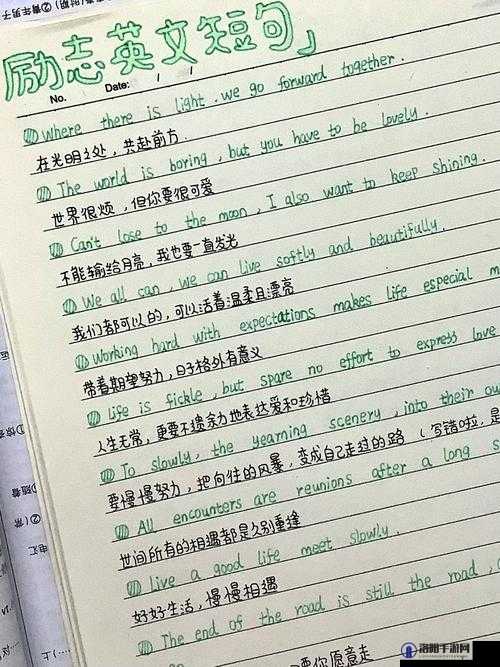 励志英文短句」
No. Date: / /
Where there is light, we go forward together.
在光明之处，共赴前方.
The world is boring, but you have to be lovely.
世界很烦，但你要很可爱
Can't lose to the moon, I also want to keep shining.
不能输给月亮，我也要一直发光
We all can, we can live softly and beautifully.
我们都可以的，可以活着温柔且漂亮
Working hard with expectations makes life especial m
带着期望努力，日子格外有意义
Life is fickle, but spare no effort to express love
人生无常，更要不遗余力地表达爱和珍惜
To slowly, the yearning scenery, into their ow
要慢慢努力，把向往的风景，变成自己走过的路（写错啦，是
All encounters are reunions after a long s
世间所有的相遇都是久别重逢
Live a good life meet slowly.
好好生活，慢慢相遇
The end of the road is still the road,
要你愿意走
洛阳手游网